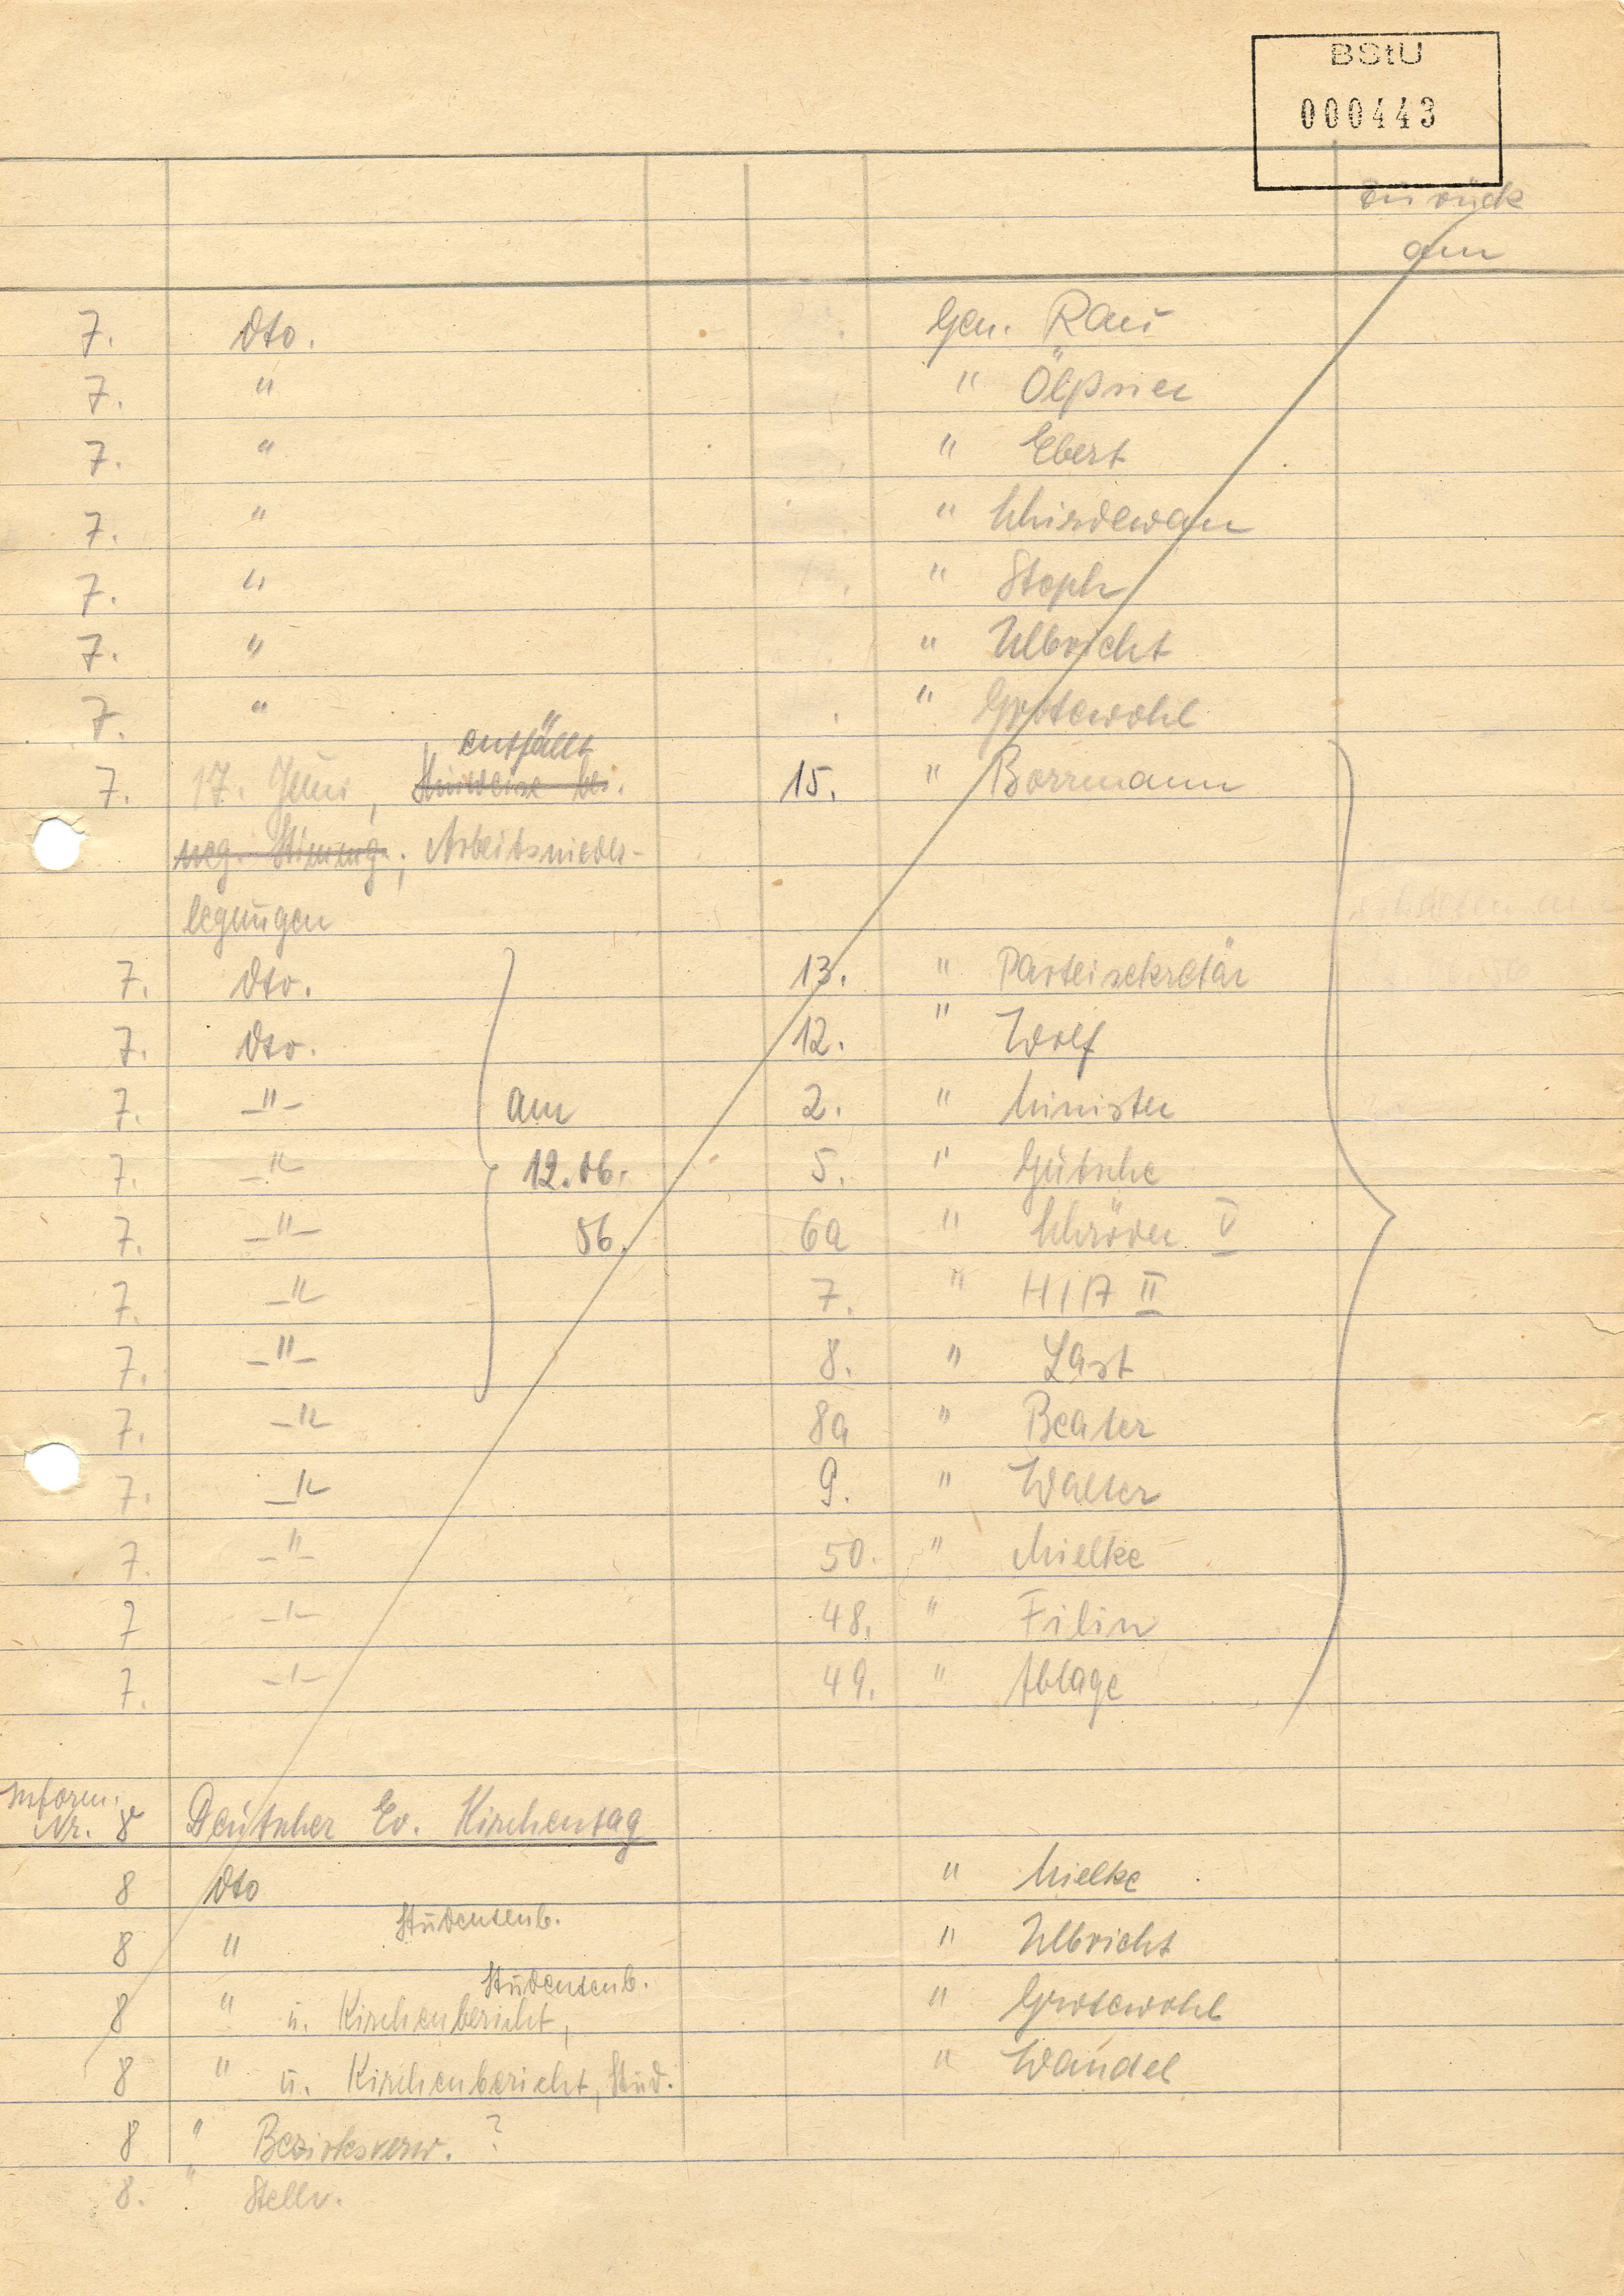 BStU
000443
zurück
am
7. dto. Gen. Rau
7. " " Ölßner
7. " " Ebert
7. " " Schirdewan
7. " " Stoph
7. " " Ulbricht
7. " " Grotewohl
entfällt
7. 17. Juni, Hinweise bei. 15. " Borrmann
neg. Stimmg.; Arbeitsnieder-
legungen
7. dto. 13. " Parteisekretär
7. dto. 12. " Wolf
7. -"- am 2. " Minister
7. -"- 12.06. 5. " Gutsche
7. -"- 56. 6a " Schröder V
7. -"- 7. " HVA II
7. -"- 8. " Last
7. -"- 8a " Beater
7. -"- 9. " Walter
7. -"- 50. " Mielke
7 -"- 48. " Filin
7. -"- 49. " Ablage
Inform.
Nr. 8 Deutscher Ev. Kirchentag
8 dto " Mielke
Studentenb.
8 " " Ulbricht
Studentenb.
8 " u. Kirchenbericht, " Grotewohl
8 " u. Kirchenbericht, Stud. " Wandel
8 " Bezirksverw. ?
8. " Stellv.